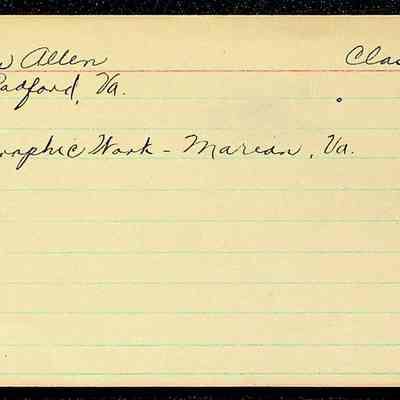 Allen Clas
Radford, Va.
raphic Work - Marion, Va.